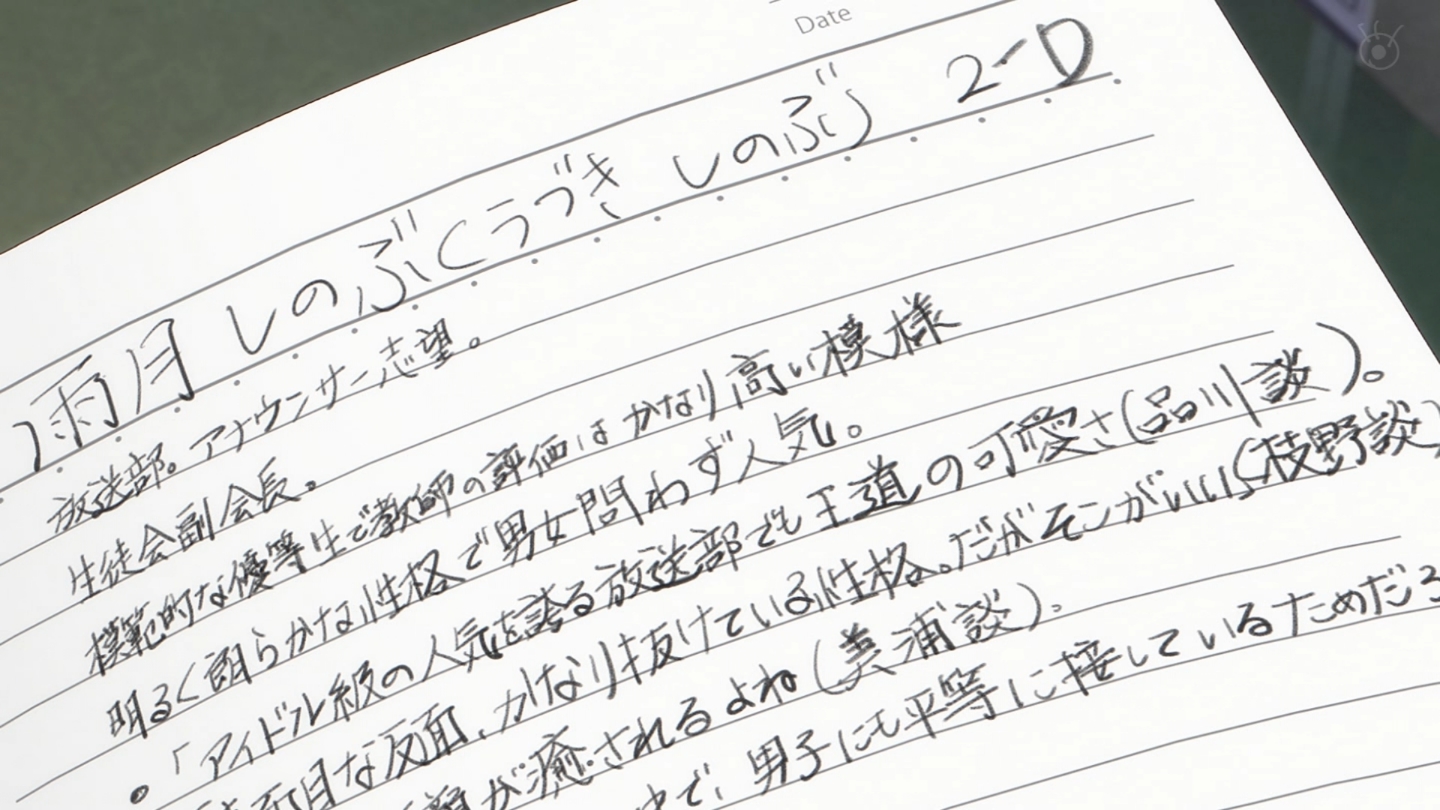 Date
雨月 しのぶ(うづき しのぶ) 2-D
放送部。アナウンサー志望。
生徒会副会長。
模範的な優等生で教師の評価はかなり高い模様
明るく朗らかな性格で男女問わず人気。
・「アイドル級の人気を誇る放送部でも王道の可愛さ(品川談)。
面目な反面、かなり抜けている性格。だがそこがいい(枝野談)
が癒されるよね(美浦談)。
で、男子にも平等に接しているためだろ